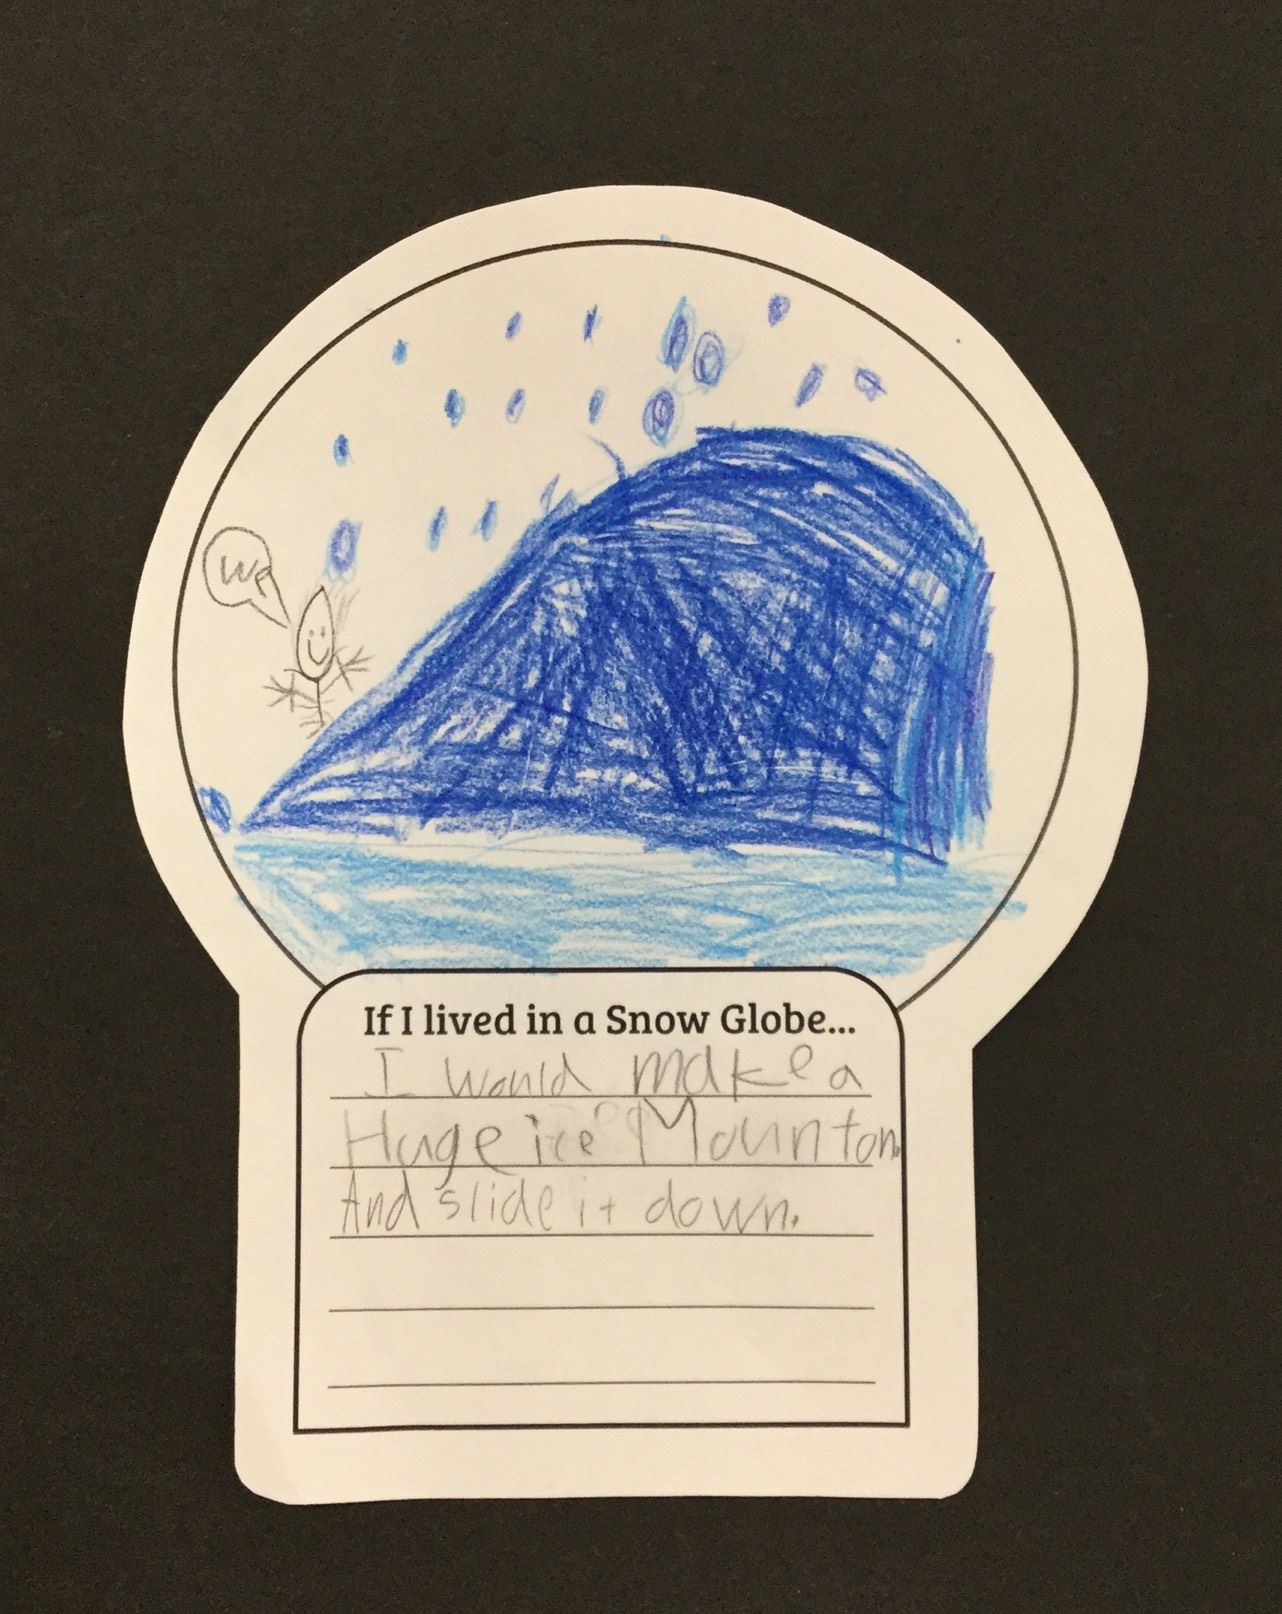 We
If I lived in a Snow Globe...
I would make a
Huge ice Mounton.
And slide it down.